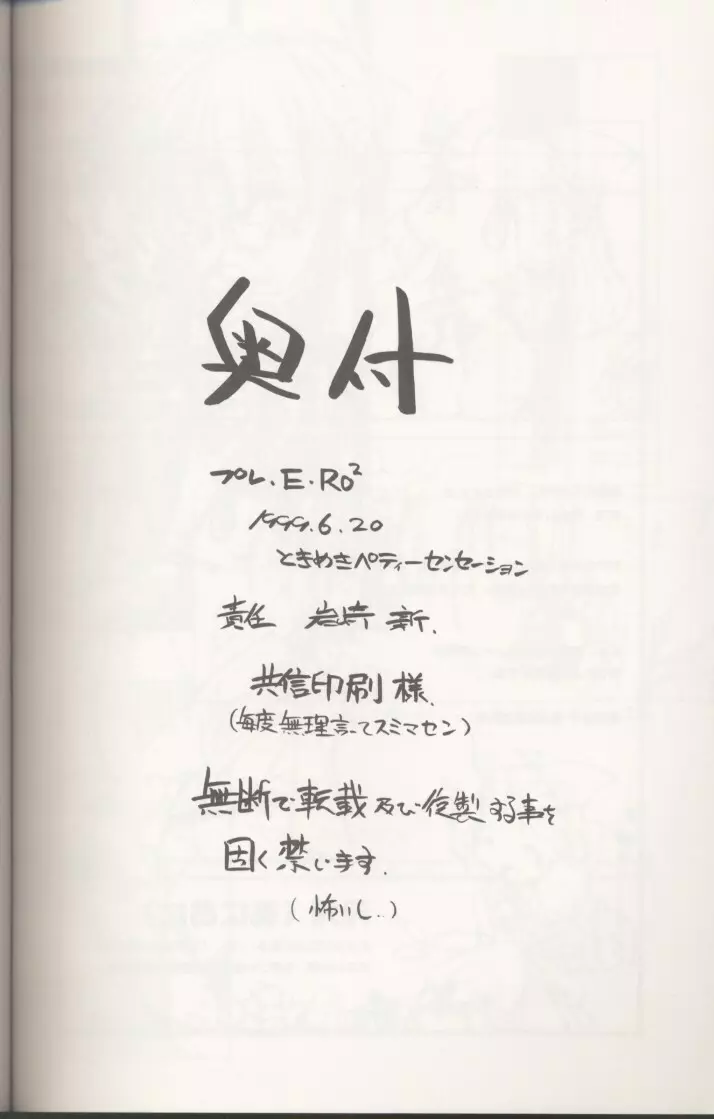 奥付
プレ.E.Ro²
1999.6.20
ときめきペティーセンセーション
責任 岩崎 新.
共信印刷 様.
(毎度無理言ってスミマセン)
無断で転載及び複製する事を
固く禁じます.
(怖いし..)